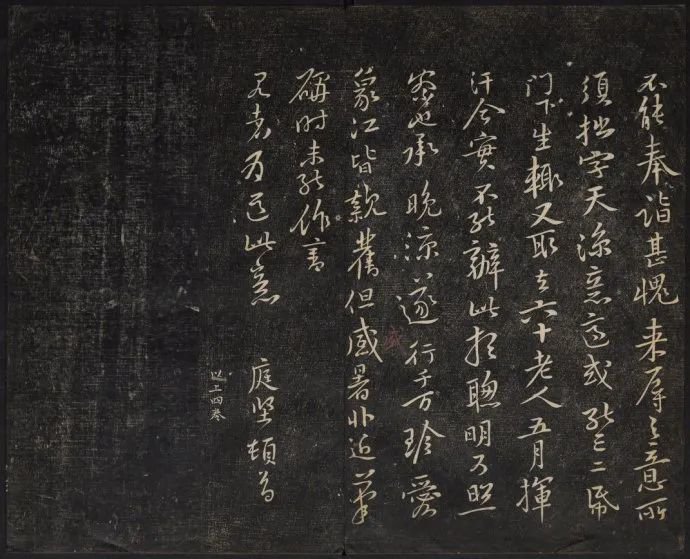 不能奉詣甚愧来辱之意所
須拙字天涼意適或能三二紙
門下生輒又取去六十老人五月揮
汗今實不能辦此想聰明可照
察也承晚涼遂行千万珍愛
象江皆親舊但盛暑非近筆
硯時未能作書
見者為道此意 庭堅頓首
以上四卷
盛